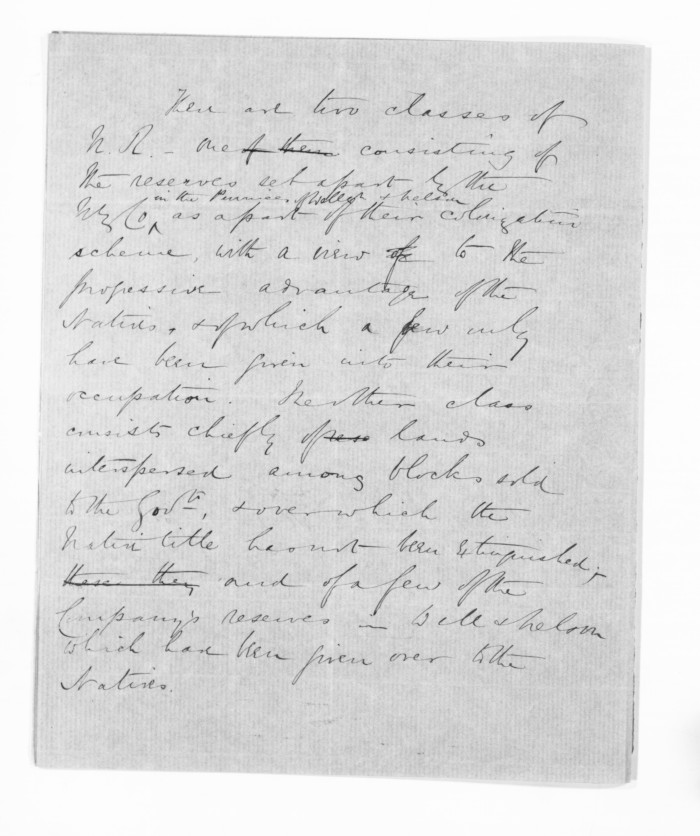 There are two classes of
N. R. – one of them consisting of
the reserves set apart by the
in the Provinces of Well^gt & Nelson
NZ Co. ^ as a part of their colonization
scheme, with a view of to the
progressive advantage of the
Natives, & of which a few only
have been given into their
occupation. The other class
consists chiefly of lands
interspersed among blocks sold
to the Gov^t, & over which the
Native title has not been extinguished;
these they and of a few of the
Company's reserves in Well & Nelson
which have been given over to the
Natives.